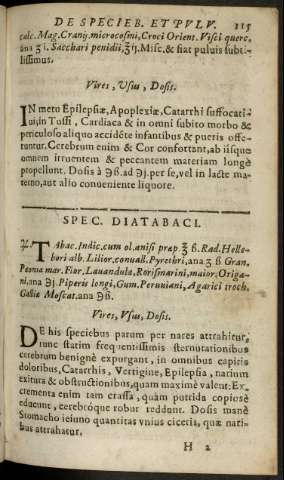 DE SPECIEB. ET PVLV. 115
calc. Mag. Cranij. microcosmi, Croci Orient. Visci querc.
ana ʒ i. Sacchari penidii, ℥ ij. Misc. & fiat puluis subti-
lissimus.
Vires, Vsus, Dosis.
IN metu Epilepsiæ, Apoplexiæ, Catarrhi suffocati-
ui, in Tussi, Cardiaca & in omni subito morbo &
periculoso aliquo accidẽte infantibus & pueris offe-
runtur. Cerebrum enim & Cor confortant, ab iisque
omnem irruentem & peccantem materiam longè
propellunt. Dosis à ℈ß. ad ℈j. per se, vel in lacte ma-
terno, aut alio conueniente liquore.
SPEC. DIATABACI.
℞. TAbac. Indic. cum ol. anisi præp. ʒ ß. Rad. Helle-
bori alb. Lilior. conuall. Pyrethri, ana ʒ ß Gran.
mar. Flor. Lauandulæ, Rorismarini, maior. Origa-
ni, ana ℈j. Piperis longi, Gum. Peruuiani, Agarici troch.
Galliæ Moscat. ana ℈ß.
Vires, Vsus, Dosis.
DE his speciebus parum per nares attrahitur,
tunc statim frequentissimis sternutationibus
cerebrum benignè expurgant, in omnibus capitis
doloribus, Catarrhis, Vertigine, Epilepsia, narium
exitura & obstructionibus, quam maximè valent: Ex-
crementa enim tam crassa, quàm putrida copiosè
educunt, cerebróque robur reddunt. Dosis manè
Stomacho ieiuno quantitas vnius ciceris, quæ nari-
bus attrahatur.
H 2